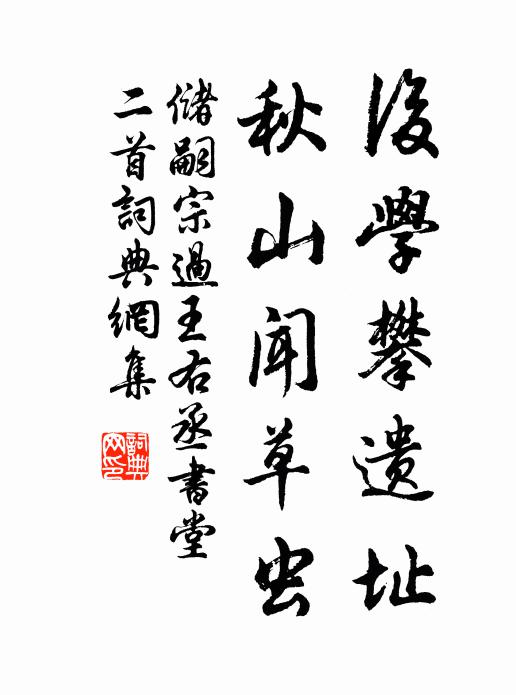 後學攀遺址
秋山聞草虫
儲嗣宗過王右丞書堂
二首詞典網集
詞典網印